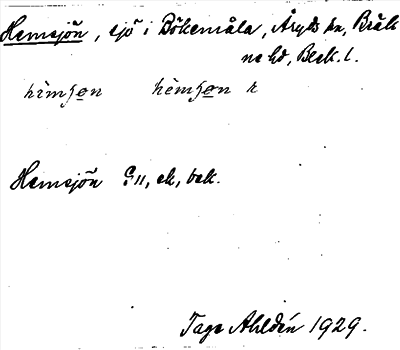 Hemsjön, sjö i Bökemåla, Åryds sn, Bräk
ne hd, Blek. l.
hèmʃo̲n hèmʃo̲n r
Hemsjön GU, ek, bek.
Tage Ahldén 1929.